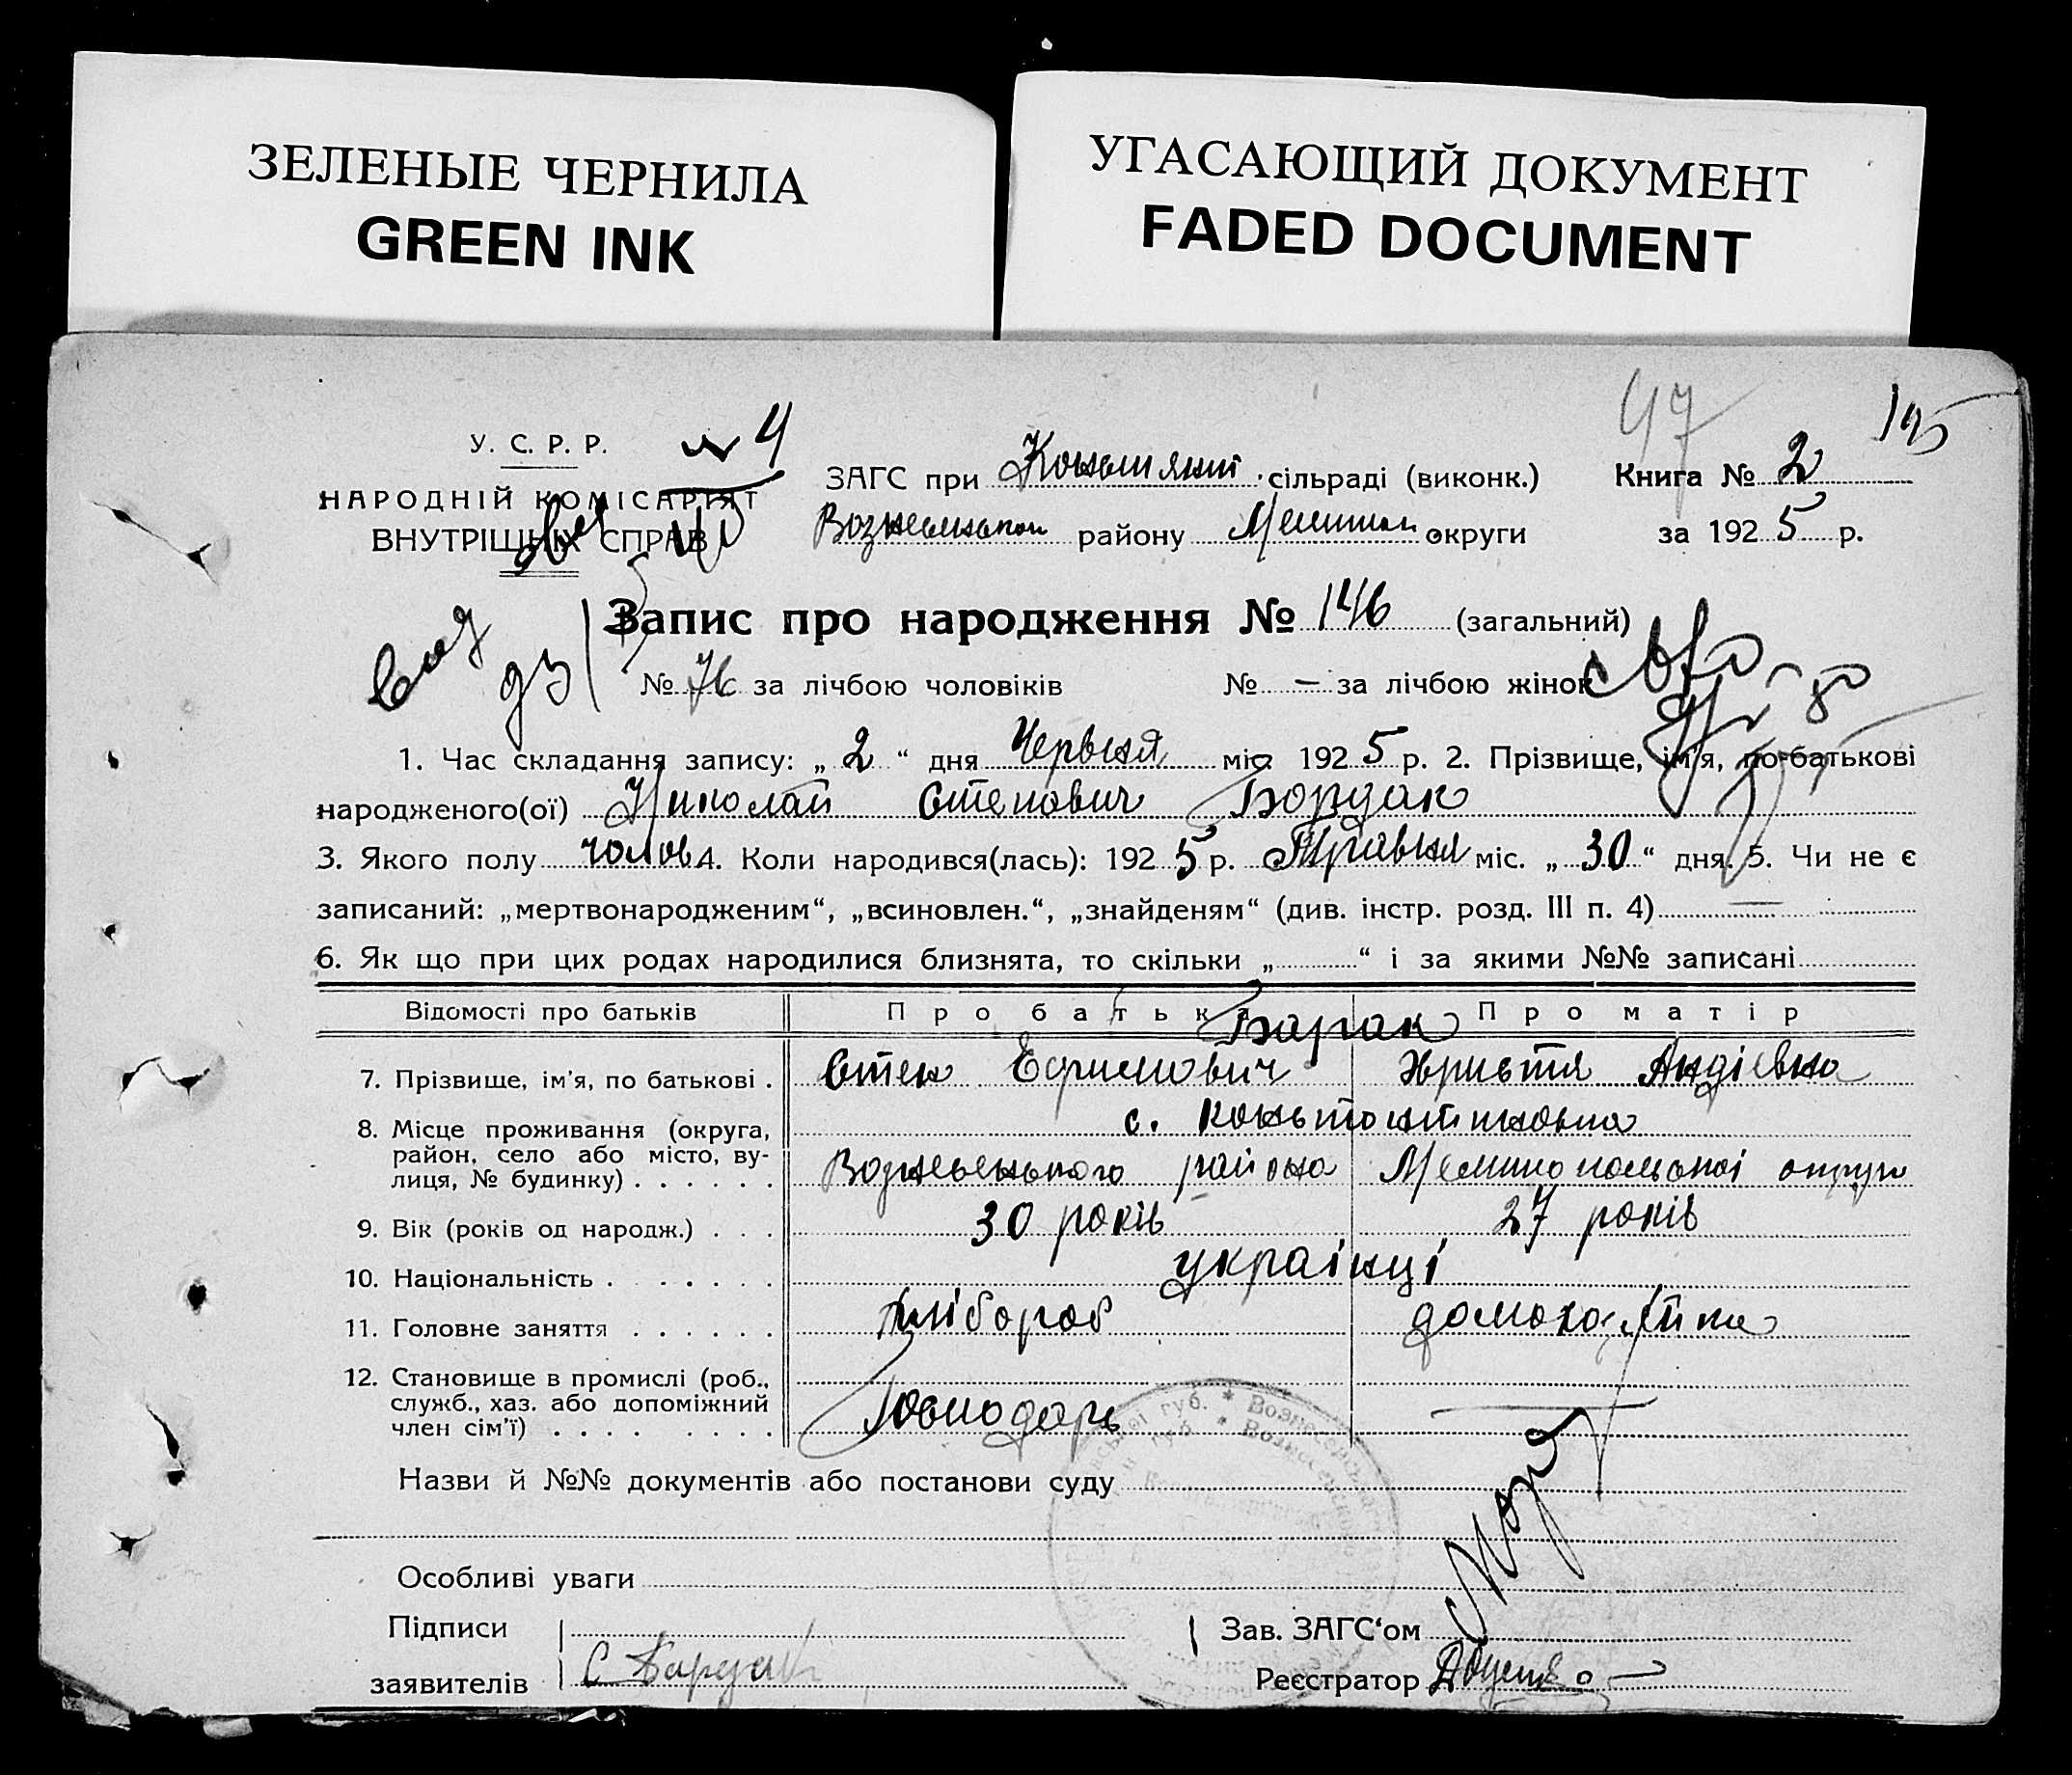 ЗЕЛЕНЫЕ ЧЕРНИЛА
GREEN INK
УГАСАЮЩИЙ ДОКУМЕНТ
FADED DOCUMENT
47
У. С. Р. Р.
НАРОДНІЙ КОМІСАРІЯТ
ВНУТРІШНІХ СПРАВ
ЗАГС при сільраді (виконк.)
Книга № 2
району округи
за 1925 р.
Запис про народження № 146 (загальний)
№ 76 за лічбою чоловіків № — за лічбою жінок
1. Час складання запису: „ 2 “ дня Червня міс. 1925 р. 2. Прізвище, ім'я, по-батькові
народженого(ої) Николай Степович Бордак
3. Якого полу чолов 4. Коли народився(лась): 1925 р. Травня міс. „ 30 “ дня. 5. Чи не є
записаний: „мертвонародженим“, „всиновлен.“, „знайденям“ (див. інстр. розд. III п. 4) —
6. Як що при цих родах народилися близнята, то скільки „ “ і за якими №№ записані
Відомості про батьків Про батька Про матір
7. Прізвище, ім'я, по батькові . Степ Ефимович Христя Андіевна
8. Місце проживання (округа, район, село або місто, вулиця, № будинку) . . . . . . с. Констонтиновка
района Мелитопольскоі округи
9. Вік (років од народж.) . . . 30 років 27 років
10. Національність . . . . . . українці
11. Головне заняття . . . . . . Хлібороб домохазяйка
12. Становище в промислі (роб., служб., хаз. або допоміжний член сім'ї) . . . . . . . . Господарь —
Назви й №№ документів або постанови суду
Особливі уваги
Підписи
заявителів С Бардак
Зав. ЗАГС‘ом
Реєстратор